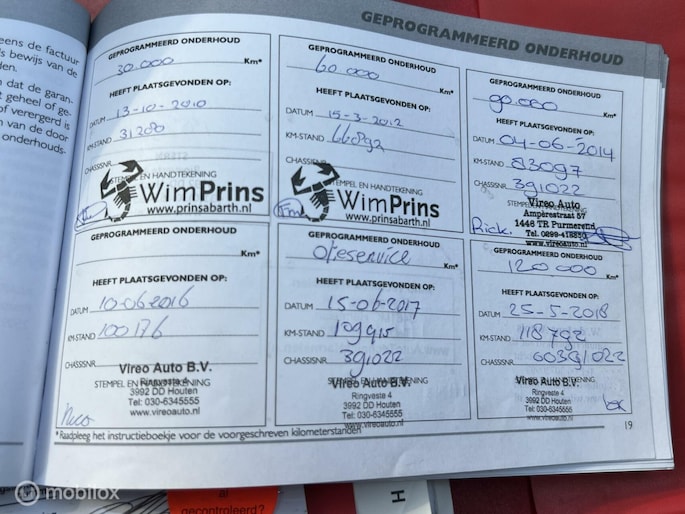 GEPROGRAMMEERD ONDERHOUD
eens de factuur
s bewijs van de
den.
n dat de garan-
t geheel of ge-
of verergerd is
n van de door
onderhouds-
GEPROGRAMMEERD ONDERHOUD
30.000 Km*
HEEFT PLAATSGEVONDEN OP:
DATUM 13-10-2010
KM-STAND 31200
CHASSISNR.
STEMPEL EN HANDTEKENING
WimPrins
www.prinsabarth.nl
GEPROGRAMMEERD ONDERHOUD
60.000 Km*
HEEFT PLAATSGEVONDEN OP:
DATUM 15-3-2012
KM-STAND 66892
CHASSISNR.
STEMPEL EN HANDTEKENING
WimPrins
www.prinsabarth.nl
GEPROGRAMMEERD ONDERHOUD
90.000 Km*
HEEFT PLAATSGEVONDEN OP:
DATUM 04-06-2014
KM-STAND 83097
CHASSISNR. 391022
STEMPEL EN HANDTEKENING
Vireo Auto
Ampèrestraat 57
1446 TR Purmerend
Rick. Tel. 0299-418850
www.vireoauto.nl
GEPROGRAMMEERD ONDERHOUD
Km*
HEEFT PLAATSGEVONDEN OP:
DATUM 10-06-2016
KM-STAND 100176
CHASSISNR.
Vireo Auto B.V.
STEMPEL EN HANDTEKENING
Ringveste 4
3992 DD Houten
Tel: 030-6345555
www.vireoauto.nl
Nico
GEPROGRAMMEERD ONDERHOUD
Olieservice Km*
HEEFT PLAATSGEVONDEN OP:
DATUM 15-06-2017
KM-STAND 109915
CHASSISNR. 391022
Vireo Auto B.V.
STEMPEL EN HANDTEKENING
Ringveste 4
3992 DD Houten
Tel: 030-6345555
www.vireoauto.nl
GEPROGRAMMEERD ONDERHOUD
120000 Km*
HEEFT PLAATSGEVONDEN OP:
DATUM 25-5-2018
KM-STAND 118792
CHASSISNR. 60391022
Vireo Auto B.V.
STEMPEL EN HANDTEKENING
Ringveste 4
3992 DD Houten
Tel: 030-6345555
www.vireoauto.nl
* Raadpleeg het instructieboekje voor de voorgeschreven kilometerstanden
19
al
gecontroleerd?
H
mobilox